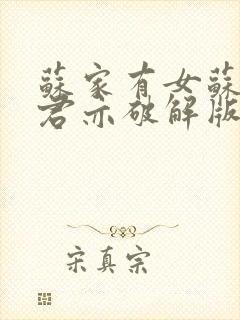 蘇家有女蘇
君亦破解版
宋真宗